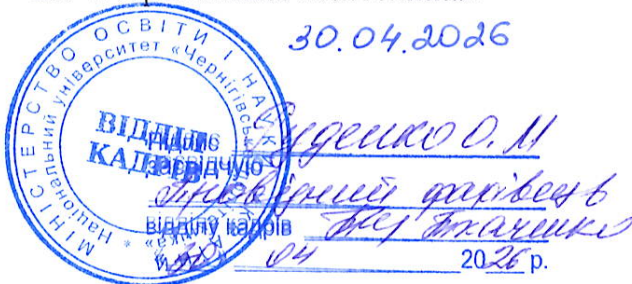 30.04.2026
МІНІСТЕРСТВО ОСВІТИ І НАУКИ
Національний університет «Чернігівська
ВІДДІЛ
КАДРІВ
Підпис Руденко О.М
засвідчую
Провідний фахівець
відділу кадрів Ткаченко
30 04 2026 р.